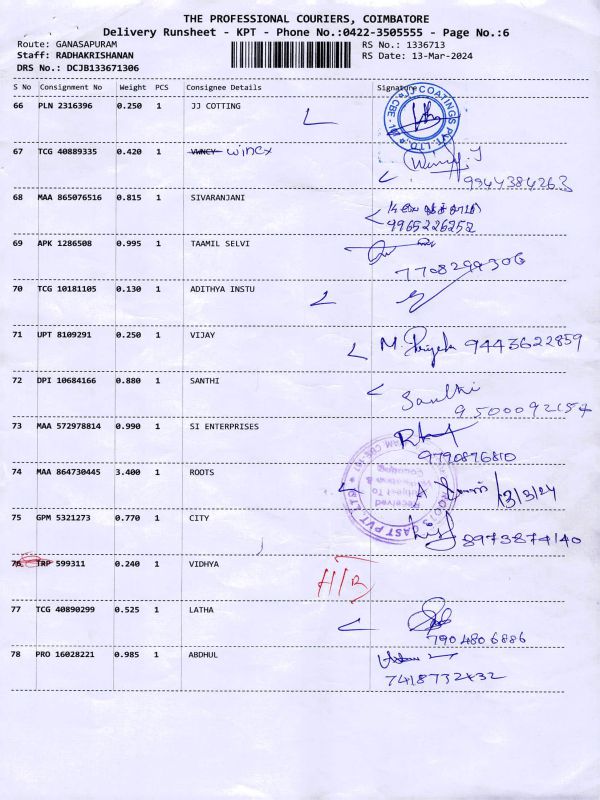 THE PROFESSIONAL COURIERS, COIMBATORE
Delivery Runsheet - KPT - Phone No.:0422-3505555 - Page No.:6
Route: GANASAPURAM
RS No.: 1336713
Staff: RADHAKRISHANAN
RS Date: 13-Mar-2024
DRS No.: DCJB133671306
S No Consignment No Weight PCS Consignee Details Signature
66 PLN 2316396 0.250 1 JJ COTTING
JJ COATINGS PVT. LTD. CBE
67 TCG 40889335 0.420 1 VWNCY wincx
9944384263
68 MAA 865076516 0.815 1 SIVARANJANI
9965226252
69 APK 1286508 0.995 1 TAAMIL SELVI
7708299306
70 TCG 10181105 0.130 1 ADITHYA INSTU
71 UPT 8109291 0.250 1 VIJAY M. 9443622859
72 DPI 10684166 0.880 1 SANTHI Santhi
9500092154
73 MAA 572978814 0.990 1 SI ENTERPRISES
9790876810
74 MAA 864730445 3.400 1 ROOTS 13/3/24
ROOTS CAST PVT. LTD.
Received
Subject To
75 GPM 5321273 0.770 1 CITY 8973874140
76 TRP 599311 0.240 1 VIDHYA
77 TCG 40890299 0.525 1 LATHA
7904806886
78 PRO 16028221 0.985 1 ABDHUL
7418732432